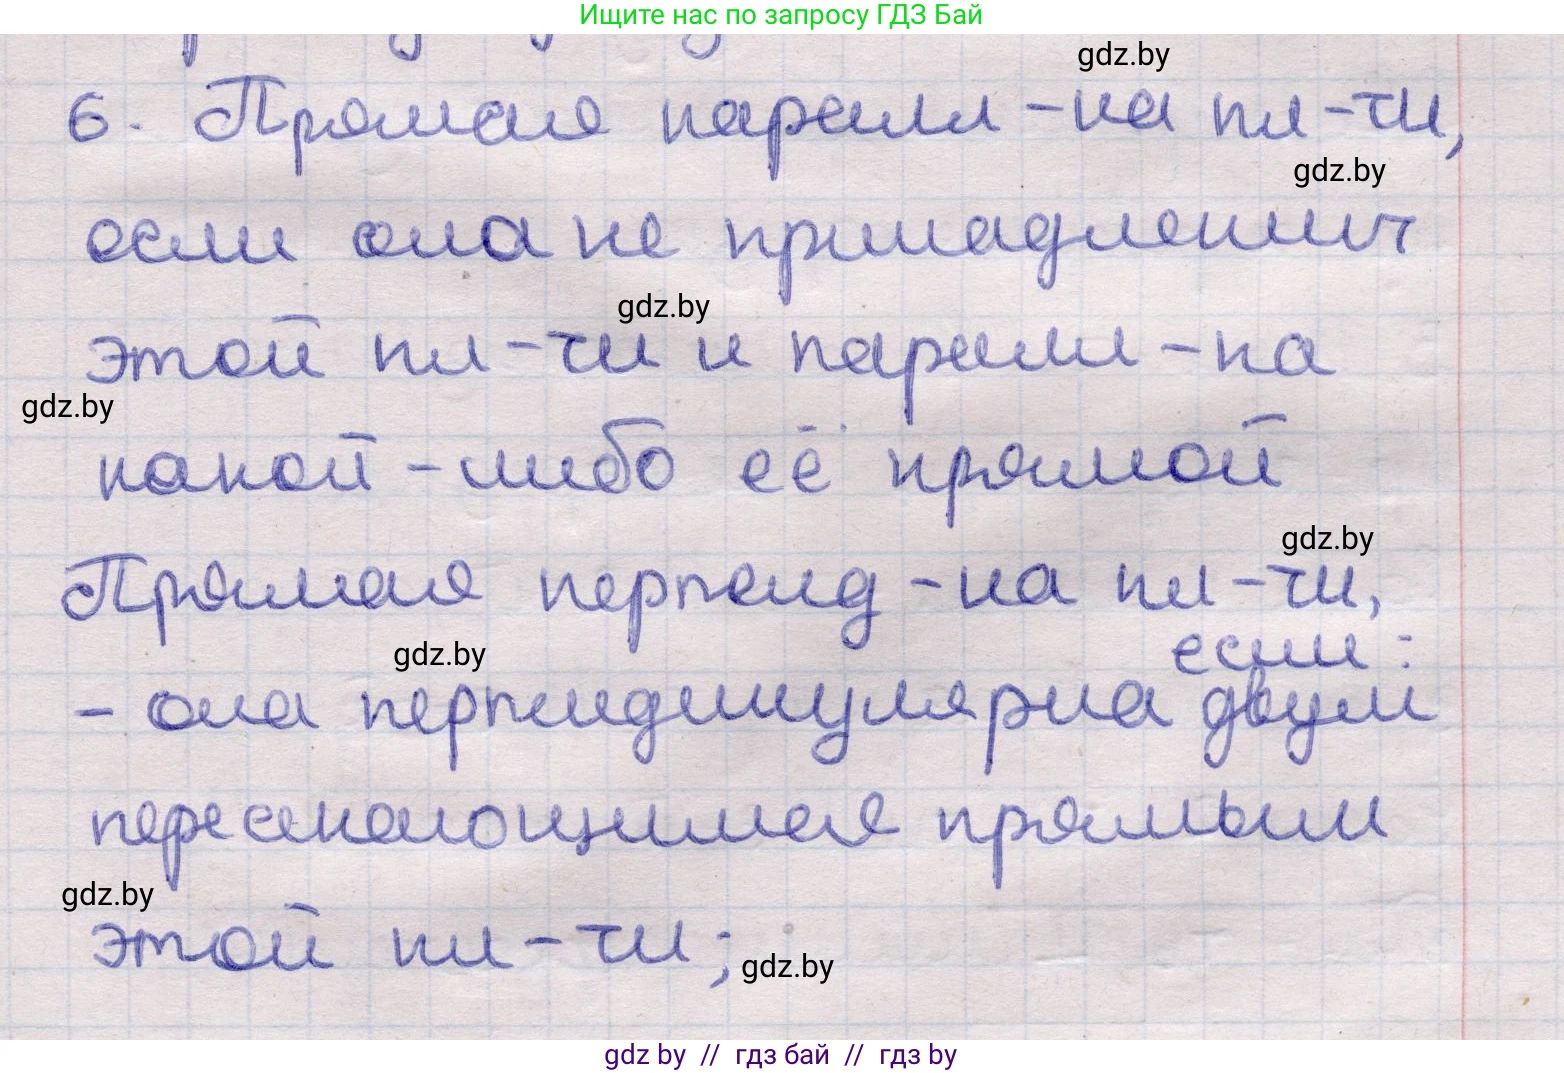 Ищите нас по запросу ГДЗ Бай
gdz.by
6. Прямая паралл-на пл-ти,
gdz.by
если она не принадлежит
gdz.by
этой пл-ти и паралл-на
gdz.by
какой-либо её прямой
gdz.by
Прямая перпенд-на пл-ти,
если:
gdz.by
- она перпендикулярна двум
пересекающимся прямым
gdz.by
этой пл-ти;
gdz.by
gdz by // гдз бай // гдз by